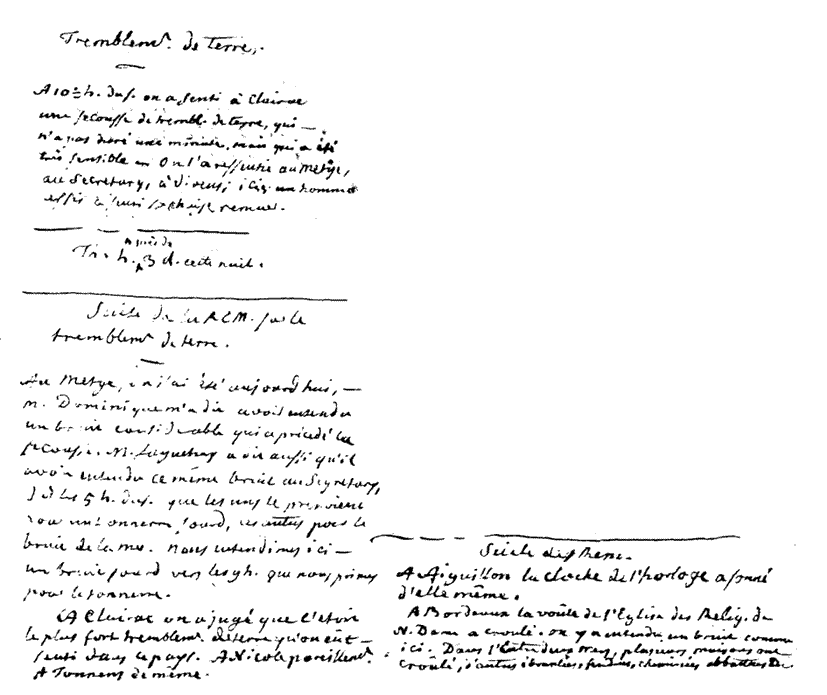 Tremblemt. de terre.
A 10 h. du s. on a senti à Clairac
une secousse de trembl. de terre, qui —
n'a pas duré une minute, mais qui a été
très sensible on l'a ressentie au Metge,
au Secretary, à ici un homme
assis a senti sa chaise remuer.
après de
Tr. h. 3 d. cette nuit.
Suite de la REM. sur le
tremblemt. de terre.
Au Metge, où j'ai été aujourd'hui, —
M. Dominique m'a dit avoir entendu
un bruit considérable qui a précédé la
secousse. M. Laguehay a dit aussi qu'il
avoit entendu ce même bruit au Segretary,
les 5 h. du s. que les uns le prenoient
pour un tonnerre sourd, les autres pour le
bruit de la mer. nous entendimes ici —
un bruit sourd vers les 9 h. que nous primes
pour le tonnerre.
A Clairac on a jugé que c'étoit
le plus fort tremblemt. de terre qu'on eût —
senti dans le pays. A Nicole pareillemt.
A Tonneins de même.
Suite des Phen.
A Aiguillon la cloche de l'horloge a sonné
d'elle même.
A Bordeaux la voûte de l'Eglise des Relig. de
N. Dame a croulé. on y a entendu un bruit comme
ici. Dans l'Entre deux mers, plusieurs maisons ont
croulé, d'autres ébranlées, fendues, cheminées abbattues &c